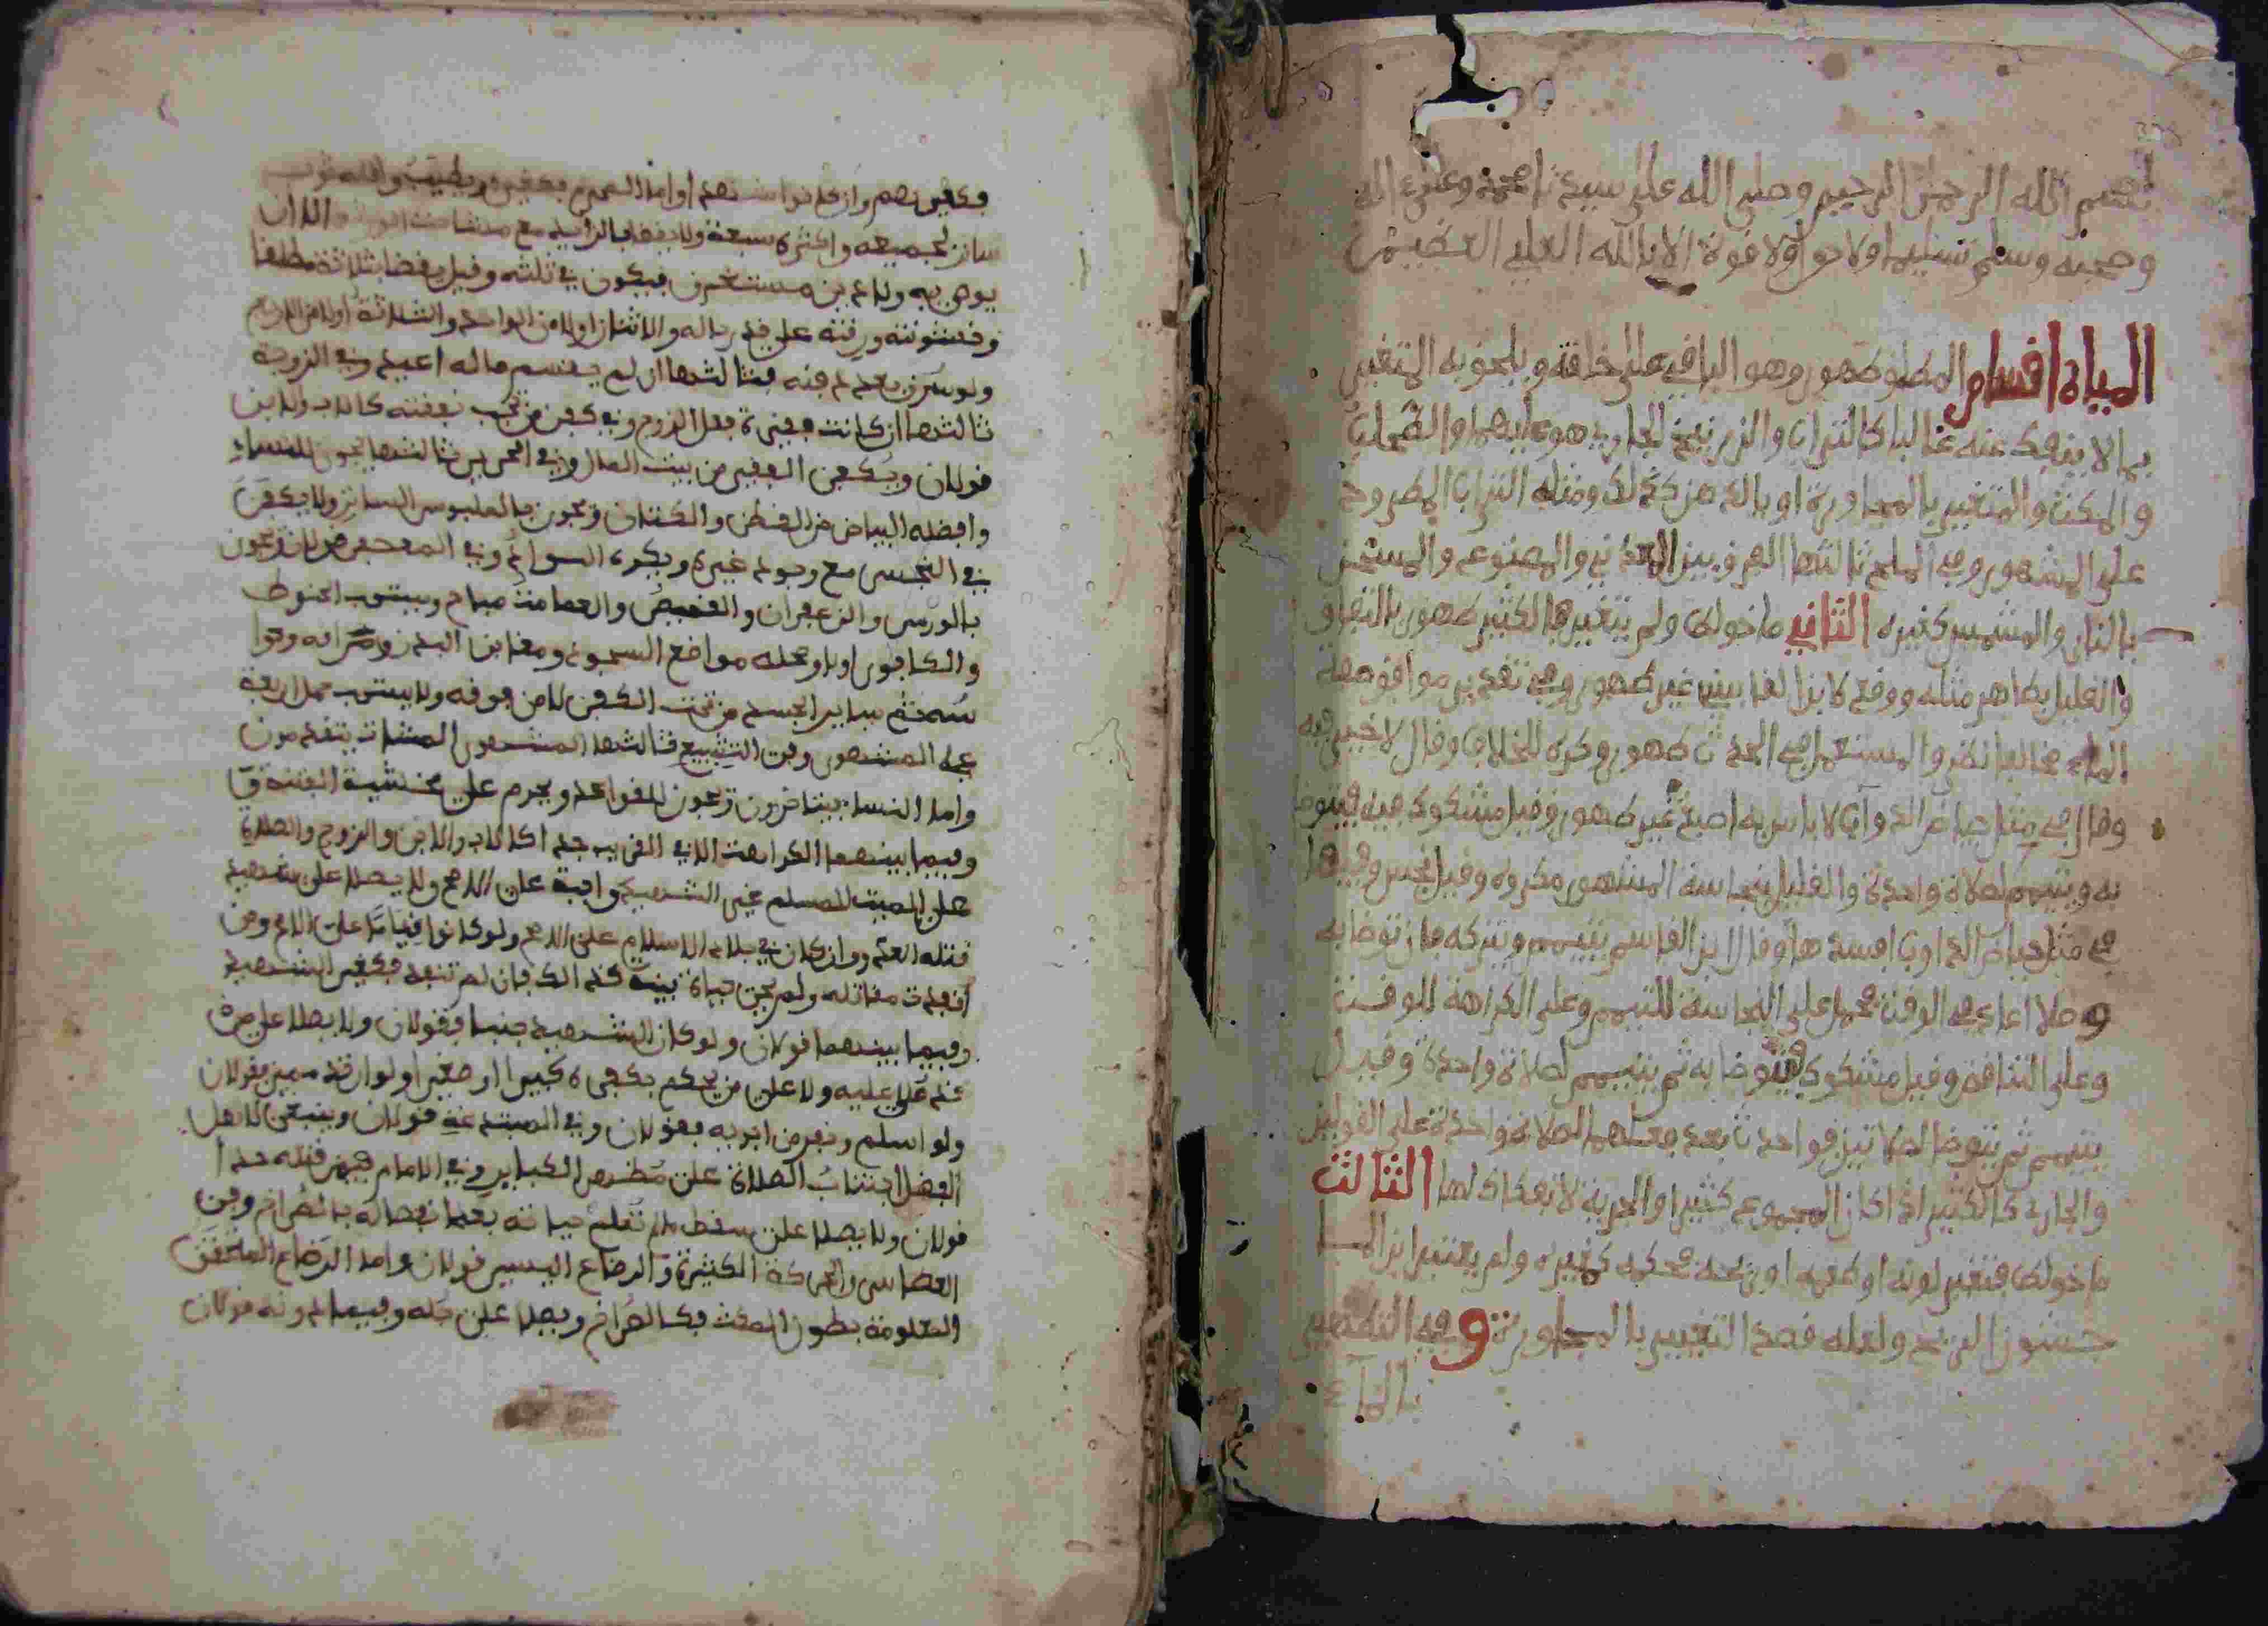 بسم الله الرحمن الرحيم وصلى الله على سيدنا محمد وعلى اله
وصحبه وسلم تسليما ولا حول ولا قوة الا بالله العلي العظيم
المياه اقسام المطلق طهور وهو الباقي على خلقته ويلحق به المتغير
بما لا ينفك عنه غالبا كالتراب والزرنيخ الجاري هو عليهما والطحلب
والمكث والمتغير بالمجاورة او بالدهن كذلك ومثله التراب المطروح
على المشهور وفي الملح ثالثها الفرق بين المعدني والمصنوع والمسخن
بالنار والمشمس كغيره الثاني ما خولط ولم يتغير فالكثير طهور باتفاق
والقليل بطاهر مثله ووقع لابن القابسي غير طهور وفي تقدير موافق صفة
الماء مخالفا نظر والمستعمل في الحدث طهور وكره للخلاف وقال لا خير فيه
وقال في مثل حياض الدواب لا باس به اصبغ غير طهور وقيل مشكوك فيه فيتوضا
به ويتيمم لصلاة واحدة والقليل بنجاسة المشهور مكروه وقيل نجس وفيها
في مثل حياض الدواب افسدها وقال ابن القاسم يتيمم ويتركه فان توضا به
وصلا اعاد في الوقت فحمل على النجاسة للتيمم وعلى الكراهة للوقت
وعلى التناقض وقيل مشكوك فيتوضا به ثم يتيمم لصلاة واحدة وقيل
يتيمم ثم يتوضا لصلاتين فواحدث بعد فعلهما لصلاة واحدة على القولين
والجاري كالكثير اذا كان المجموع كثيرا والجرية لا انفكاك لها الثالث
ما خولط فتغير لونه او طعمه او ريحه فحكمه كمغيره ولم يعتبر ابن الما
جشون الريح ولعله قصد التغيير بالمجاورة وفي التطهير
بالماء
وكفن بهم وان
ساتر لجميعه واكثره سبعة ولا يقضا بالزايد مع مشاحة الورثة الا ان
يوصي به ولا دين مستغرق فيكون في ثلثه وقيل يقضا بثلاثة مطلقا
وخشونته ورقته على قدر حاله والاثنان اولى من الواحد والثلاثة اولى من الاربع
ولو سرق بعد دفنه فثالثها ان لم يقسم ماله اعيد وفي الزوجة
ثالثها ان كانت فقيرة فعلى الزوج وفي كفن من تجب نفقته كالاب والابن
قولان ويكفن الفقير من بيت المال وفي الحرير ثالثها يجوز للنساء
وافضله البياض من القطن والكتان ويجوز بالملبوس الساتر ولا يكفن
في النجس مع وجود غيره ويكره السواد وفي المعصفر قولان ويجوز
بالورس والزعفران والقميص والعمامة مباح ويستحب الحنوط
والكافور اولى ومحله مواضع السجود ومغابن البدن ومراقه وحوا
سه ثم ساير الجسد من تحت الكفن لا من فوقه ولا يستحب حمل اربعة
على المشهور وفي التشييع ثالثها المشهور المشاة يتقدمون
واما النساء فيتاخرون ويجوز للقواعد ويحرم على مخشية الفتنة
وفيما بينهما الكراهة الا في القريب جدا كالاب والابن والزوج والصلاة
على الميت المسلم غير الشهيد واجبة على الاصح ولا يصلا على شهيد
قتله العدو وان كان في بلاد الاسلام على الاصح ولو كانوا نياما على الاصح ومن
انفذت مقاتله ولم يحي حياة بينة كذلك فان لم تنفذ فكغير الشهيد
وفيما بينهما قولان ولو كان الشهيد جنبا فقولان ولا يصلا على من
قد صلي عليه ولا على من يحكم بكفره كبيرا او صغيرا ولو ارتد مميز فقولان
ولو اسلم ونفر من ابويه فقولان وفي المبتدعة قولان وينبغي لاهل
الفضل اجتناب الصلاة على مظهر الكباير وفي الامام فيمن قتله حدا
قولان ولا يصلا على سقط ما لم تعلم حياته بعد انفصاله بالصراخ وفي
العطاس والحركة الكثيرة والرضاع اليسير قولان واما الرضاع المتحقق
المعلومة بطول المكث فكالصراخ ويصلا على جله وفيما دونه قولان